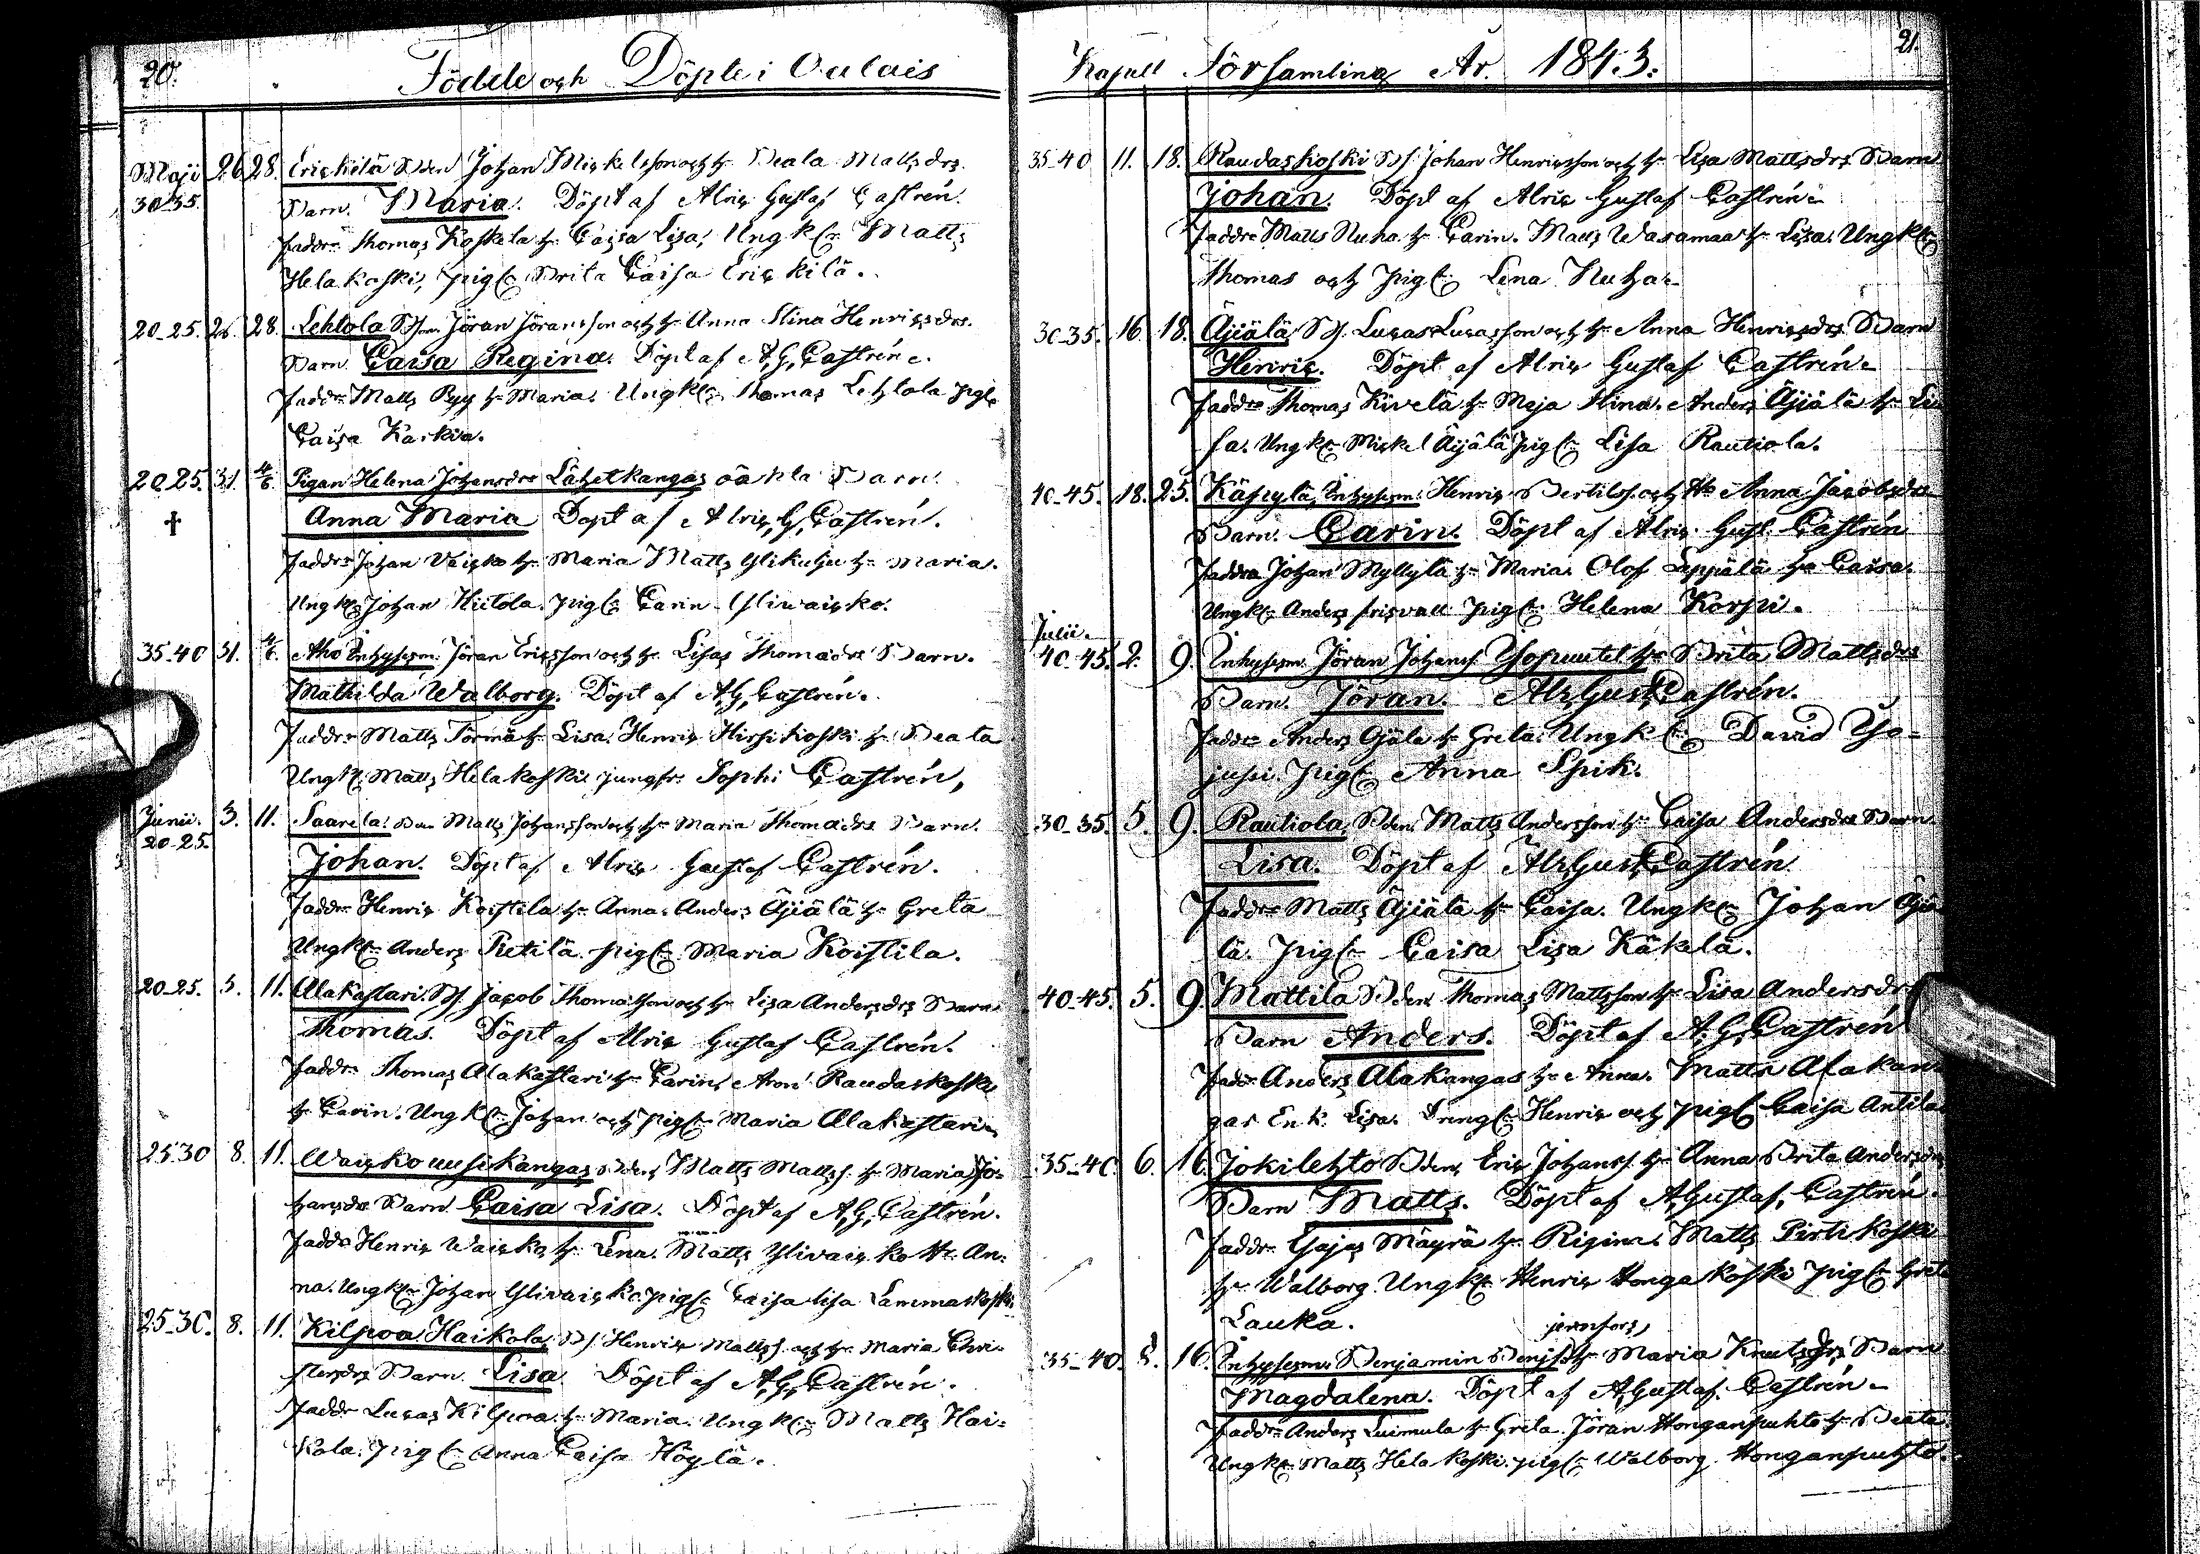 20.
Födde och Döpte i Oulais
Maji 26 28. Erickilä Bden Johan Mickelsson och h: Beata Matts drs.
30-35. Barn. Maria. Döpt af Alric Gustaf Castrén.
Faddr Thomas Koskela h: Caisa Lisa, Ungk: Matts
Helakoski, pig: Brita Caisa Erickilä.
20-25. 26. 28. Lehtola Jöran Jöransson och h: Anna Stina Henricsdrs.
Barn Caisa Regina. Döpt af A, G, Castrén.
Faddr Matts Pyy h: Maria. Ungk: Thomas Lehtola pig:
Caisa Karkia.
20.25. 31. 4/6 Pigan Helena Johansdrs Lähetkangas oäkta Barn.
✝ Anna Maria Döpt af Alric, G, Castrén.
Faddr Johan Vaicko h: Maria Matts Ylikulju h: Maria.
Ungk: Johan Hiitola. pig: Carin Ylivaicko.
35-40 31. 4/6. Aho Inhysesm. Jöran Ericsson och h: Lisas Thomadrs Barn.
Mathilda Walborg. Döpt af A, G, Castrén.
Faddr Matts Törmä h: Lisa. Henric Hirsikoski h: Beata
Ungk: Matts Helakoski jungfr. Sophi Castrén,
Junii. 3. 11. Saarela. Bden Matts Johansson och h: Maria Thomadrs Barn.
20-25. Johan. Döpt af Alric Gustaf Castrén.
Faddr Henric Koistila h: Anna. Anders Äijälä h: Greta
Ungk: Anders Pietilä. pig: Maria Koistila.
20-25. 5. 11. Alakastari. Jacob Thomasson och h: Lisa Andersdrs Barn
Thomas. Döpt af Alric Gustaf Castrén.
Faddr Thomas Alakastari h: Carin, Aron Raudaskoski
h: Carin. Ungk: Johan och pig: Maria Alakastari.
25.30 8. 11. Waickouusikangas Bden Matts Mattss. h: Maria Jo-
hansdrs Barn Caisa Lisa. Döpt af A, G, Castrén.
Faddr Henric Waicko h: Lena. Matts Ylivaicko h: An-
na. Ungk: Johan Ylivaicko pig: Caisa Lisa Lammaskoski.
25-30. 8. 11. Kilpua Haikola, Henric Mattss. och h: Maria Chri-
stersdrs Barn. Lisa. Döpt af A, G, Castrén.
Faddr Lucas Kilpua h: Maria. Ungk: Matts Hai-
kola. pig: Anna Caisa Höylä.
Kapell Församling År. 1843. 21.
35-40 11. 18. Raudaskoski Johan Henricsson och h: Lisa Mattsdrs. Barn
Johan. Döpt af Alric Gustaf Castrén.
Faddr Matts Nuha h: Carin. Matts Wasamaa h: Lisa. Ungk:
Thomas och pig: Lena Nuha.
30-35. 16 18. Äjälä Lucas Lucasson och h: Anna Henricsdrs. Barn
Henric. Döpt af Alric Gustaf Castrén.
Faddr Thomas Kivelä h: Maja Stina. Anders Äijälä h: Li-
sa. Ungk: Mickel Äijälä pig: Lisa Rautiola.
40-45. 18. 25. Käpylä, Inhysesm. Henric Bertilss. och h: Anna Jacobsdrs
Barn. Carin. Döpt af Alric Gust. Castrén
Faddr Johan Myllylä h: Maria. Olof Leppälä h: Caisa.
Ungk: Anders Friskall pig: Helena Korpi.
Julii.
40-45. 2. 9. Inhysesm. Jöran Johanss. h: Brita Mattsdrs
Barn. Jöran. Alr, Gust, Castrén.
Faddr Anders Ojala h: Greta. Ungk: David
pig: Anna Spik.
30-35. 5. 9. Rautiola, Bden Matts Andersson h: Caisa Andersdrs Barn.
Lisa. Döpt af Alr, Gust, Castrén
Faddr Matts Äjälä h: Caisa. Ungk: Johan Äjä-
lä. pig: Caisa Lisa Käkelä.
40-45. 5. 9. Mattila Bden Thomas Mattsson h: Lisa Andersdrs
Barn Anders. Döpt af A, G, Castrén
Faddr Anders Alakangas h: Anna. Matts Alakan-
gas Enk. Lisa. Dreng: Henric och pig: Caisa Antila.
35-40. 6. 16. Jokilehto Bden Eric Johanss. h: Anna Brita Andersdrs
Barn Matts. Döpt af A, Gustaf, Castrén.
Faddr Gajas Mäyrä h: Rigina. Matts Pirtikoski
h: Walborg. Ungk: Henric Hongakoski pig: Greta
Lauka.
jernfors,
35-40. 8. 16. Inhysesm. Benjamin h: Maria Knutsdrs Barn
Magdalena. Döpt af A, Gustaf. Castrén.
Faddr Anders Luimula h: Greta. Jöran Honganpuhto h: Beata.
Ungk: Matts Helakoski. pig: Walborg. Honganpuhto.